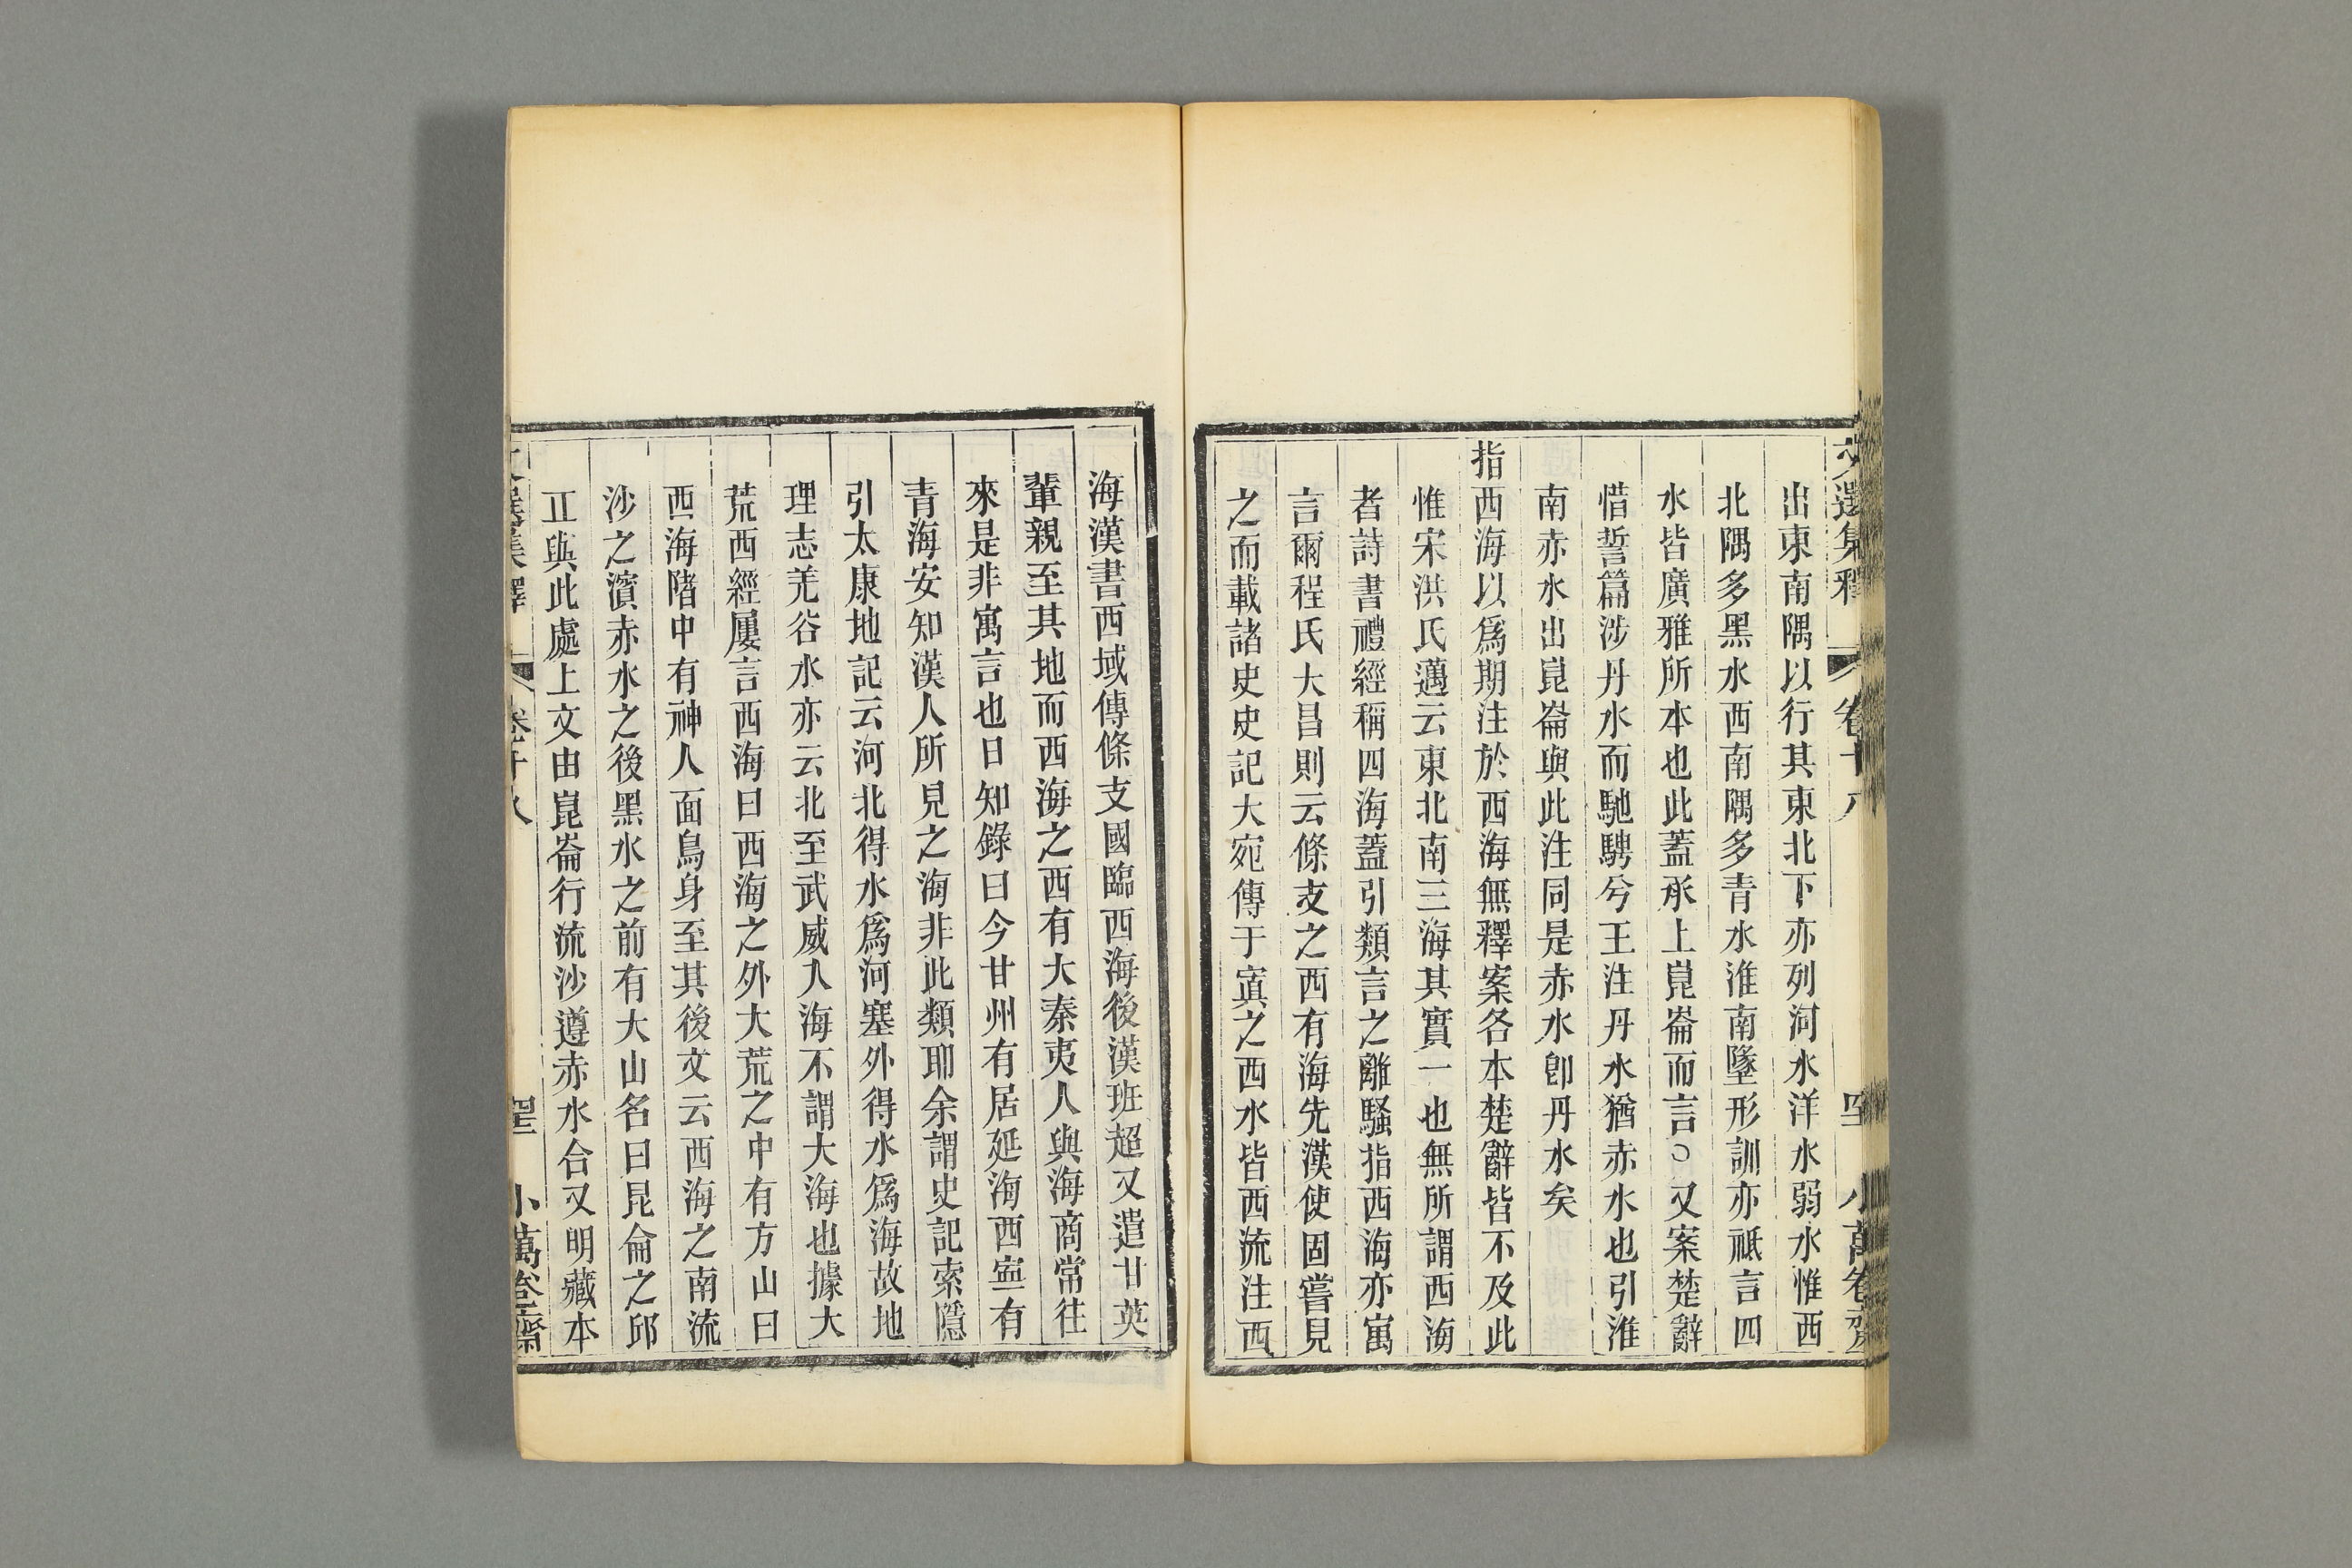 文選集釋 卷十八 小萬卷齋
出東南隅以行其東北下亦列河水洋水弱水惟西
北隅多黑水西南隅多青水淮南墜形訓亦祗言四
水皆廣雅所本也此蓋承上崑崙而言○又案楚辭
惜誓篇涉丹水而馳騁兮王注丹水猶赤水也引淮
南赤水出崑崙與此注同是赤水卽丹水矣
指西海以爲期注於西海無釋案各本楚辭皆不及此
惟宋洪氏邁云東北南三海其實一也無所謂西海
者詩書禮經稱四海蓋引類言之離騷指西海亦寓
言爾程氏大昌則云條支之西有海先漢使固嘗見
之而載諸史史記大宛傳于窴之西水皆西流注西
海漢書西域傳條支國臨西海後漢班超又遣甘英
輩親至其地而西海之西有大秦夷人與海商常往
來是非寓言也日知錄曰今甘州有居延海西寧有
青海安知漢人所見之海非此類耶余謂史記索隱
引太康地記云河北得水爲河塞外得水爲海故地
理志羌谷水亦云北至武威入海不謂大海也據大
荒西經屢言西海曰西海之外大荒之中有方山曰
西海陼中有神人面鳥身至其後文云西海之南流
沙之濱赤水之後黑水之前有大山名曰昆侖之邱
正與此處上文由崑崙行流沙遵赤水合又明藏本
文選集釋 卷十八 小萬卷齋